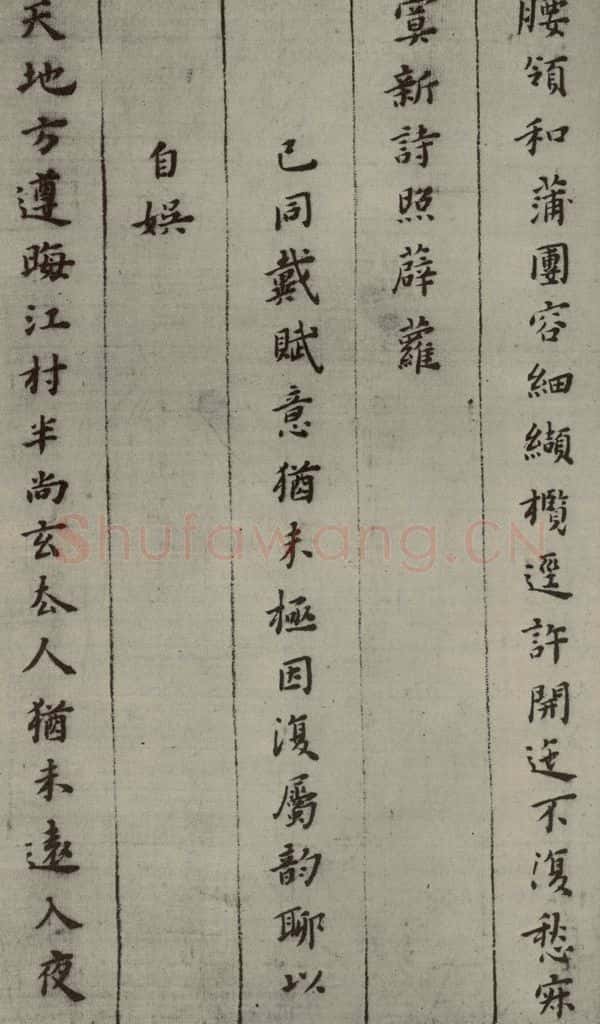 腰領和蒲團容細纈欖逕許開迮不復愁寐
寞新詩照薜蘿
已同戴賦意猶未極因復屬韵聊以
自娛
天地方遵晦江村半尚玄厺人猶未遠入夜
Shufawang.CN